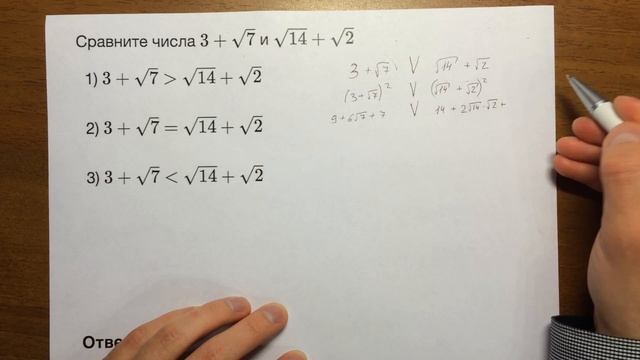 Сравните числа 3 + √7 и √14 + √2
1) 3 + √7 > √14 + √2
2) 3 + √7 = √14 + √2
3) 3 + √7 < √14 + √2
3 + √7 V √14 + √2
(3+√7)² V (√14 + √2)²
9 + 6√7 + 7 V 14 + 2√14·√2 +